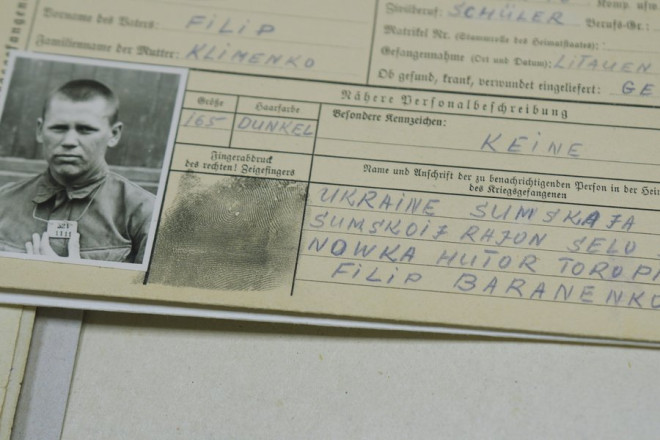 Komp. usw.
Vorname des Vaters: FILIP
Familienname der Mutter: KLIMENKO
Zivilberuf: SCHÜLER Berufs-Gr.:
Matrikel Nr. (Stammrolle des Heimatstaates):
Gefangennahme (Ort und Datum): LITAUEN
Ob gesund, krank, verwundet eingeliefert: GE
Nähere Personalbeschreibung
Größe Haarfarbe
165 DUNKEL
Besondere Kennzeichen:
KEINE
Fingerabdruck
des rechten! Zeigefingers
Name und Anschrift der zu benachrichtigenden Person in der Hei
des Kriegsgefangenen
UKRAINE SUMSKAJA
SUMSKOIJ RAJON SELO
NOWKA HUTOR TOROPI
FILIP BARANENKO